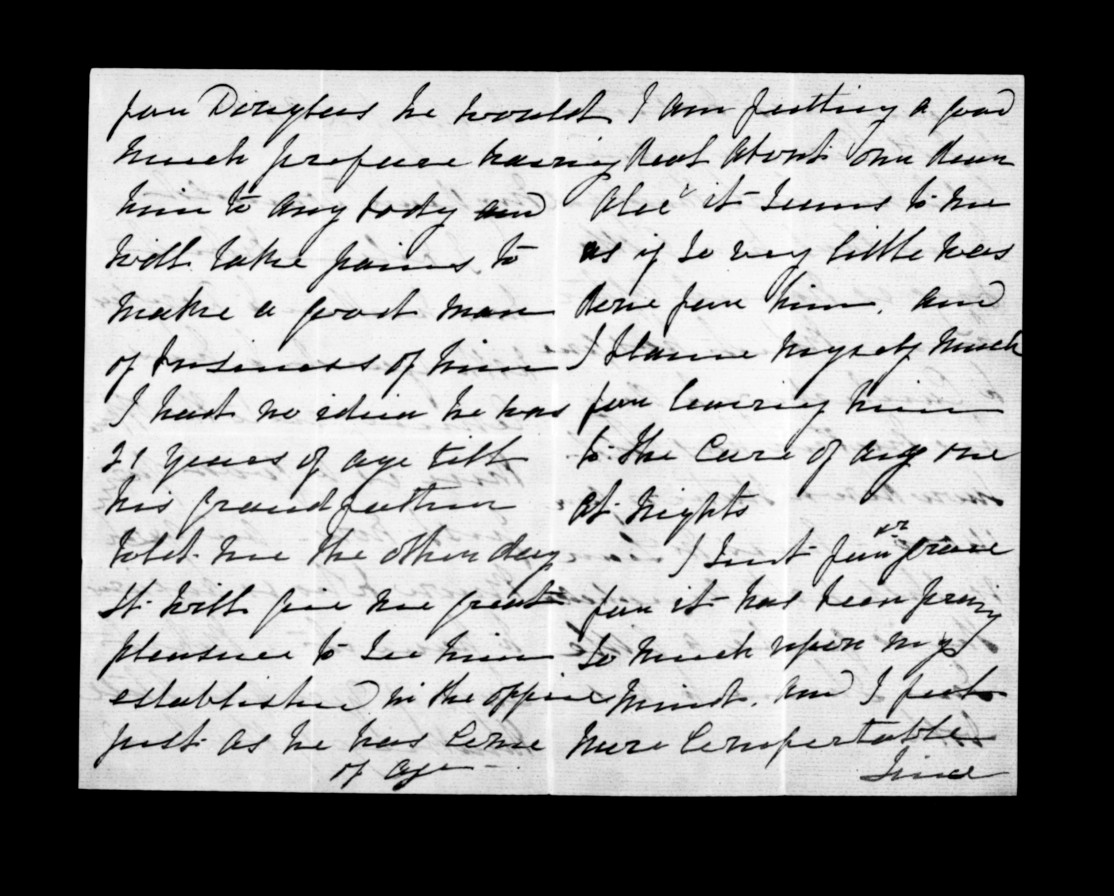 for Douglas he would
much prefer having
him to any body and
will take pains to
make a good man
of business of him
I had no idea he was
21 years of age till
his grandfather
told me the other day
It will give me great
pleasure to see him
established in the office
just as he has come
of age -
I am fretting a good
deal about our dear
Alec it seems to me
as if so very little was
done for him, and
I blame myself much
for leaving him
to the care of any one
at nights
I sent for
for it has been
so much upon my
mind. and I feel
more comfortable
since